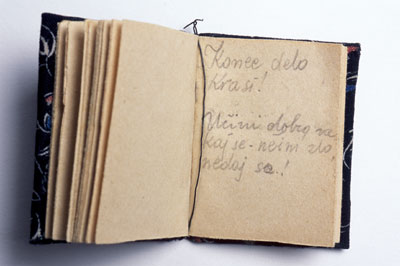 Konec delo
Krasi!
Učini dobro na
kaj se - neim zlo
nedaj se!